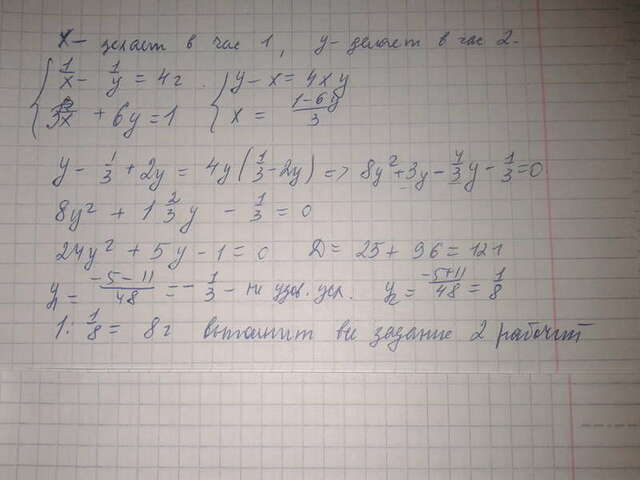 x- делает в час 1, y- делает в час 2.
1/x - 1/y = 4г. y-x = 4xy
3x + 6y = 1 x = (1-6y)/3
y - 1/3 + 2y = 4y(1/3 - 2y) => 8y² + 3y - 4/3y - 1/3 = 0
8y² + 1 2/3 y - 1/3 = 0
24y² + 5y - 1 = 0 D = 25 + 96 = 121
y₁ = (-5-11)/48 = - 1/3 - не удов. усл. y₂ = (-5+11)/48 = 1/8
1: 1/8 = 8г выполнит все задание 2 рабочий